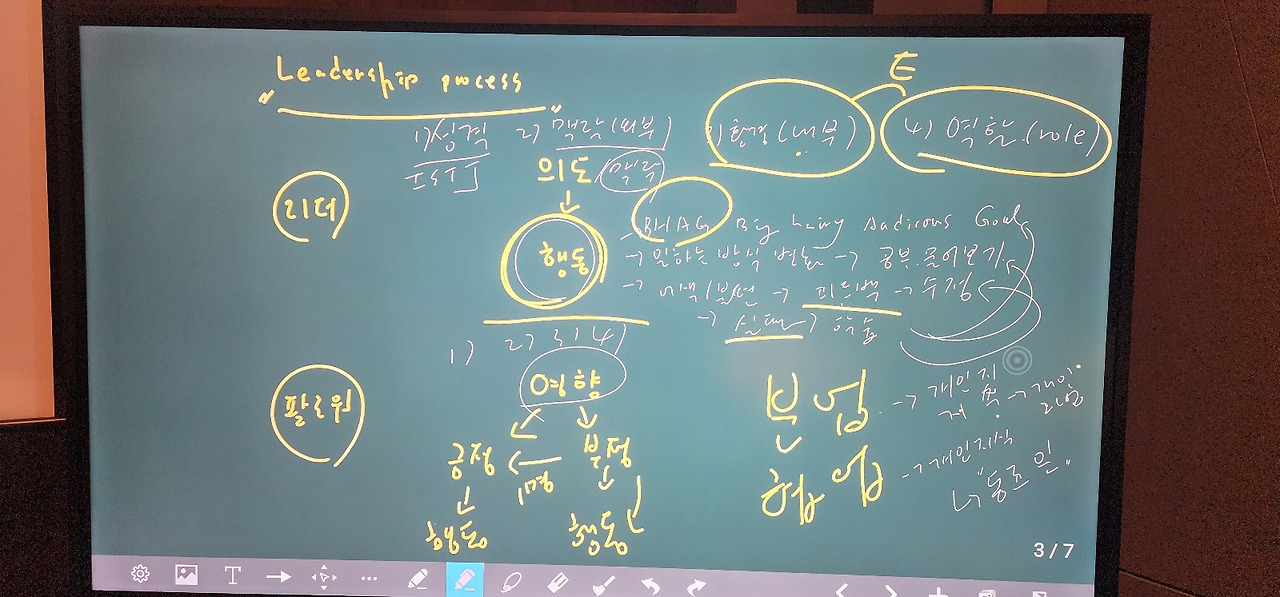 "Leadership process"
E
1) 성격 2) 맥락(외부) 3) 환경(내부) 4) 역할(role)
ISTJ
의도/맥락
리더
BHAG Big hairy Audicous Goal
행동
→ 일하는 방식 변화 → 공부.물어보기
→ → 피드백 → 수정
→ 실패 → 학습
1) 2) 3) 4)
영향
팔로워
분업 → 개인 지 → 개인
긍정 ← 부정
협업 → 개인지식
↳ "동료 인"
행동 행동
3/7
T